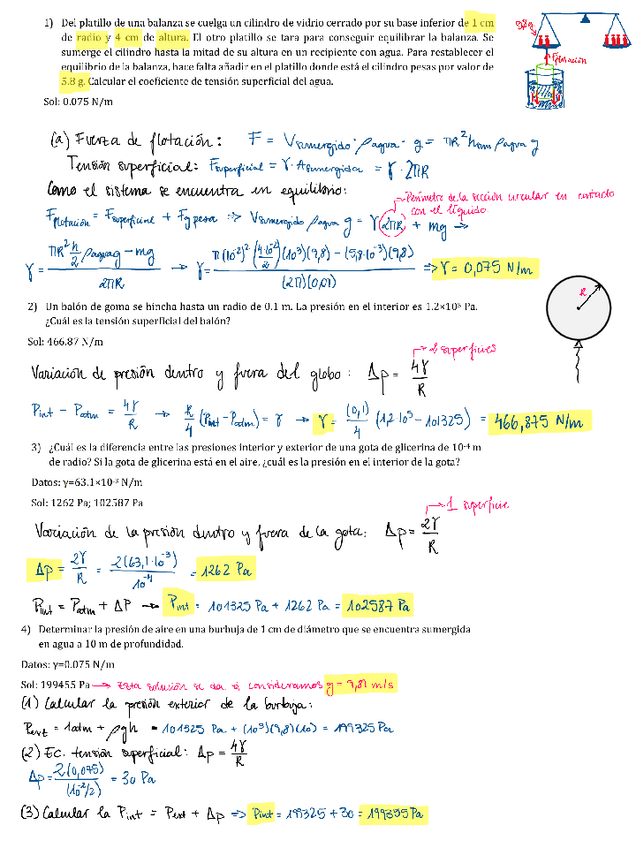 1) Del platillo de una balanza se cuelga un cilindro de vidrio cerrado por su base inferior de 1 cm
de radio y 4 cm de altura. El otro platillo se tara para conseguir equilibrar la balanza. Se
sumerge el cilindro hasta la mitad de su altura en un recipiente con agua. Para restablecer el
equilibrio de la balanza, hace falta añadir en el platillo donde está el cilindro pesas por valor de
5.8 g. Calcular el coeficiente de tensión superficial del agua.
5,8g
Flotación
Sol: 0.075 N/m
(a) Fuerza de flotación: F = Vsumergido · ρagua · g = πR² hsum ρagua g
Tensión superficial: Fsuperficial = γ · Asumergida = γ · 2πR
Como el sistema se encuentra en equilibrio:
Perímetro de la sección circular en contacto
con el líquido
Fflotación = Fsuperficial + Fg pesa ⇒ Vsumergido ρagua g = γ(2πR) + mg →
γ = (πR² h/2 ρagua g − mg) / 2πR → γ = (π(10⁻²)² (4·10⁻²/2)(10³)(9,8) − (5,8·10⁻³)(9,8)) / (2π)(0,01) ⇒ γ = 0,075 N/m
2) Un balón de goma se hincha hasta un radio de 0.1 m. La presión en el interior es 1.2×10⁵ Pa.
¿Cuál es la tensión superficial del balón?
R
Sol: 466.87 N/m
2 superficies
Variación de presión dentro y fuera del globo: Δp = 4γ/R
Pint − Patm = 4γ/R → R/4 (Pint − Patm) = γ → γ = (0,1)/4 (1,2·10⁵ − 101325) = 466,875 N/m
3) ¿Cuál es la diferencia entre las presiones interior y exterior de una gota de glicerina de 10⁻⁴ m
de radio? Si la gota de glicerina está en el aire, ¿cuál es la presión en el interior de la gota?
Datos: γ=63.1×10⁻³ N/m
Sol: 1262 Pa; 102587 Pa
1 superficie
Variación de la presión dentro y fuera de la gota: Δp = 2γ/R
Δp = 2γ/R = 2(63,1·10⁻³)/10⁻⁴ = 1262 Pa
Pint = Patm + ΔP → Pint = 101325 Pa + 1262 Pa = 102587 Pa
4) Determinar la presión de aire en una burbuja de 1 cm de diámetro que se encuentra sumergida
en agua a 10 m de profundidad.
Datos: γ=0.075 N/m
Sol: 199455 Pa → Esta solución se da si consideramos g = 9,81 m/s
(1) Calcular la presión exterior de la burbuja:
Pext = 1atm + ρgh = 101325 Pa + (10³)(9,8)(10) = 199325 Pa
(2) Ec. tensión superficial: Δp = 4γ/R
Δp = 2(0,075)/(10⁻²/2) = 30 Pa
(3) Calcular la Pint = Pext + Δp ⇒ Pint = 199325 + 30 = 199355 Pa